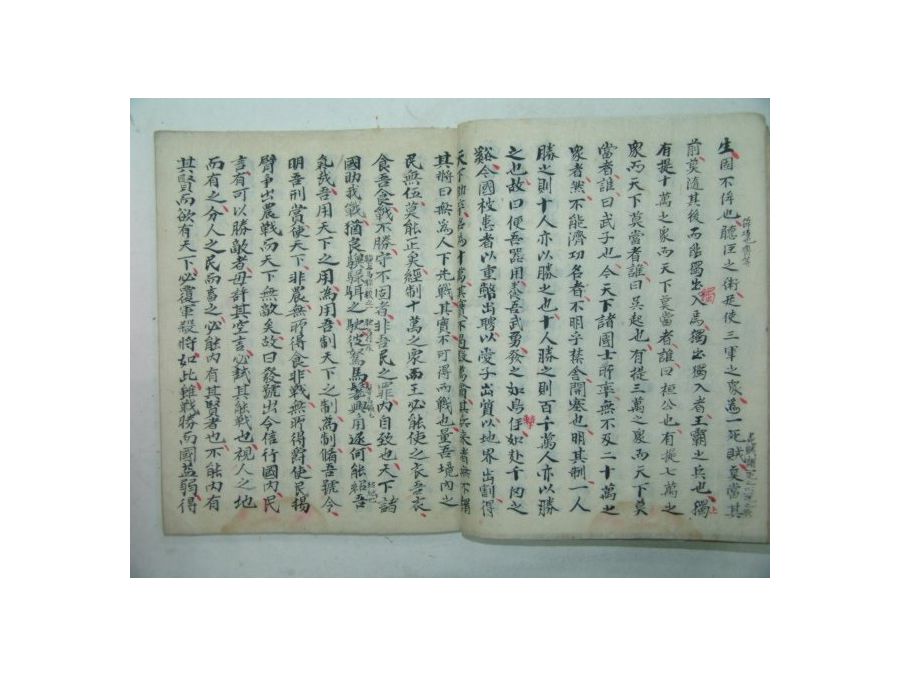 生固不侔也聽臣之術足使三軍之衆爲一死賊莫當其
前莫隨其後而能獨出入焉獨出獨入者王霸之兵也
有提十萬之衆而天下莫當者誰曰桓公也有提七萬之
衆而天下莫當者誰曰吳起也有提三萬之衆而天下莫
當者誰曰武子也今天下諸國士所率無不及二十萬之
衆者然不能濟功名者不明乎禁舍開塞也明其制一人
勝之則十人亦以勝之也十人勝之則百千萬人亦以勝
之也故曰便吾器用養吾武勇發之如鳥擊如赴千仞之
谿今國被患者以重幣出聘以愛子出質以地界出割得
天下助卒名爲十萬其實不過數萬
其將曰無爲人下先戰其實不可得而戰也量吾境內之
民無伍莫能正矣經制十萬之衆而王必能使之衣吾衣
食吾食戰不勝守不固者非吾民之罪內自致也天下諸
國助我戰猶良驥騄駬之駛彼駑馬鬐興用逐何能紹吾
氣哉吾用天下之用爲用吾制天下之制爲制脩吾號令
明吾刑賞使天下非農無所得食非戰無所得爵使民揚
臂爭出農戰而天下無敵矣故曰發號出令信行國內民
言有可以勝敵者毋許其空言必試其能戰也視人之地
而有之分人之民而畜之必能內有其賢者也不能內有
其賢而欲有天下必覆軍殺將如此雖戰勝而國益弱得